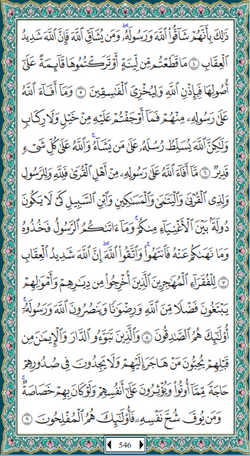 ذَٰلِكَ بِأَنَّهُمْ شَاقُّوا۟ ٱللَّهَ وَرَسُولَهُۥ ۖ وَمَن يُشَآقِّ ٱللَّهَ فَإِنَّ ٱللَّهَ شَدِيدُ
ٱلْعِقَابِ ٤ مَا قَطَعْتُم مِّن لِّينَةٍ أَوْ تَرَكْتُمُوهَا قَآئِمَةً عَلَىٰٓ
أُصُولِهَا فَبِإِذْنِ ٱللَّهِ وَلِيُخْزِىَ ٱلْفَٰسِقِينَ ٥ وَمَآ أَفَآءَ ٱللَّهُ
عَلَىٰ رَسُولِهِۦ مِنْهُمْ فَمَآ أَوْجَفْتُمْ عَلَيْهِ مِنْ خَيْلٍ وَلَا رِكَابٍ
وَلَٰكِنَّ ٱللَّهَ يُسَلِّطُ رُسُلَهُۥ عَلَىٰ مَن يَشَآءُ ۚ وَٱللَّهُ عَلَىٰ كُلِّ شَىْءٍ
قَدِيرٌ ٦ مَّآ أَفَآءَ ٱللَّهُ عَلَىٰ رَسُولِهِۦ مِنْ أَهْلِ ٱلْقُرَىٰ فَلِلَّهِ وَلِلرَّسُولِ
وَلِذِى ٱلْقُرْبَىٰ وَٱلْيَتَٰمَىٰ وَٱلْمَسَٰكِينِ وَٱبْنِ ٱلسَّبِيلِ كَىْ لَا يَكُونَ
دُولَةًۢ بَيْنَ ٱلْأَغْنِيَآءِ مِنكُمْ ۚ وَمَآ ءَاتَىٰكُمُ ٱلرَّسُولُ فَخُذُوهُ
وَمَا نَهَىٰكُمْ عَنْهُ فَٱنتَهُوا۟ ۚ وَٱتَّقُوا۟ ٱللَّهَ ۖ إِنَّ ٱللَّهَ شَدِيدُ ٱلْعِقَابِ
٧ لِلْفُقَرَآءِ ٱلْمُهَٰجِرِينَ ٱلَّذِينَ أُخْرِجُوا۟ مِن دِيَٰرِهِمْ وَأَمْوَٰلِهِمْ
يَبْتَغُونَ فَضْلًا مِّنَ ٱللَّهِ وَرِضْوَٰنًا وَيَنصُرُونَ ٱللَّهَ وَرَسُولَهُۥٓ ۚ
أُو۟لَٰٓئِكَ هُمُ ٱلصَّٰدِقُونَ ٨ وَٱلَّذِينَ تَبَوَّءُو ٱلدَّارَ وَٱلْإِيمَٰنَ مِن
قَبْلِهِمْ يُحِبُّونَ مَنْ هَاجَرَ إِلَيْهِمْ وَلَا يَجِدُونَ فِى صُدُورِهِمْ
حَاجَةً مِّمَّآ أُوتُوا۟ وَيُؤْثِرُونَ عَلَىٰٓ أَنفُسِهِمْ وَلَوْ كَانَ بِهِمْ خَصَاصَةٌ ۚ
وَمَن يُوقَ شُحَّ نَفْسِهِۦ فَأُو۟لَٰٓئِكَ هُمُ ٱلْمُفْلِحُونَ ٩
546